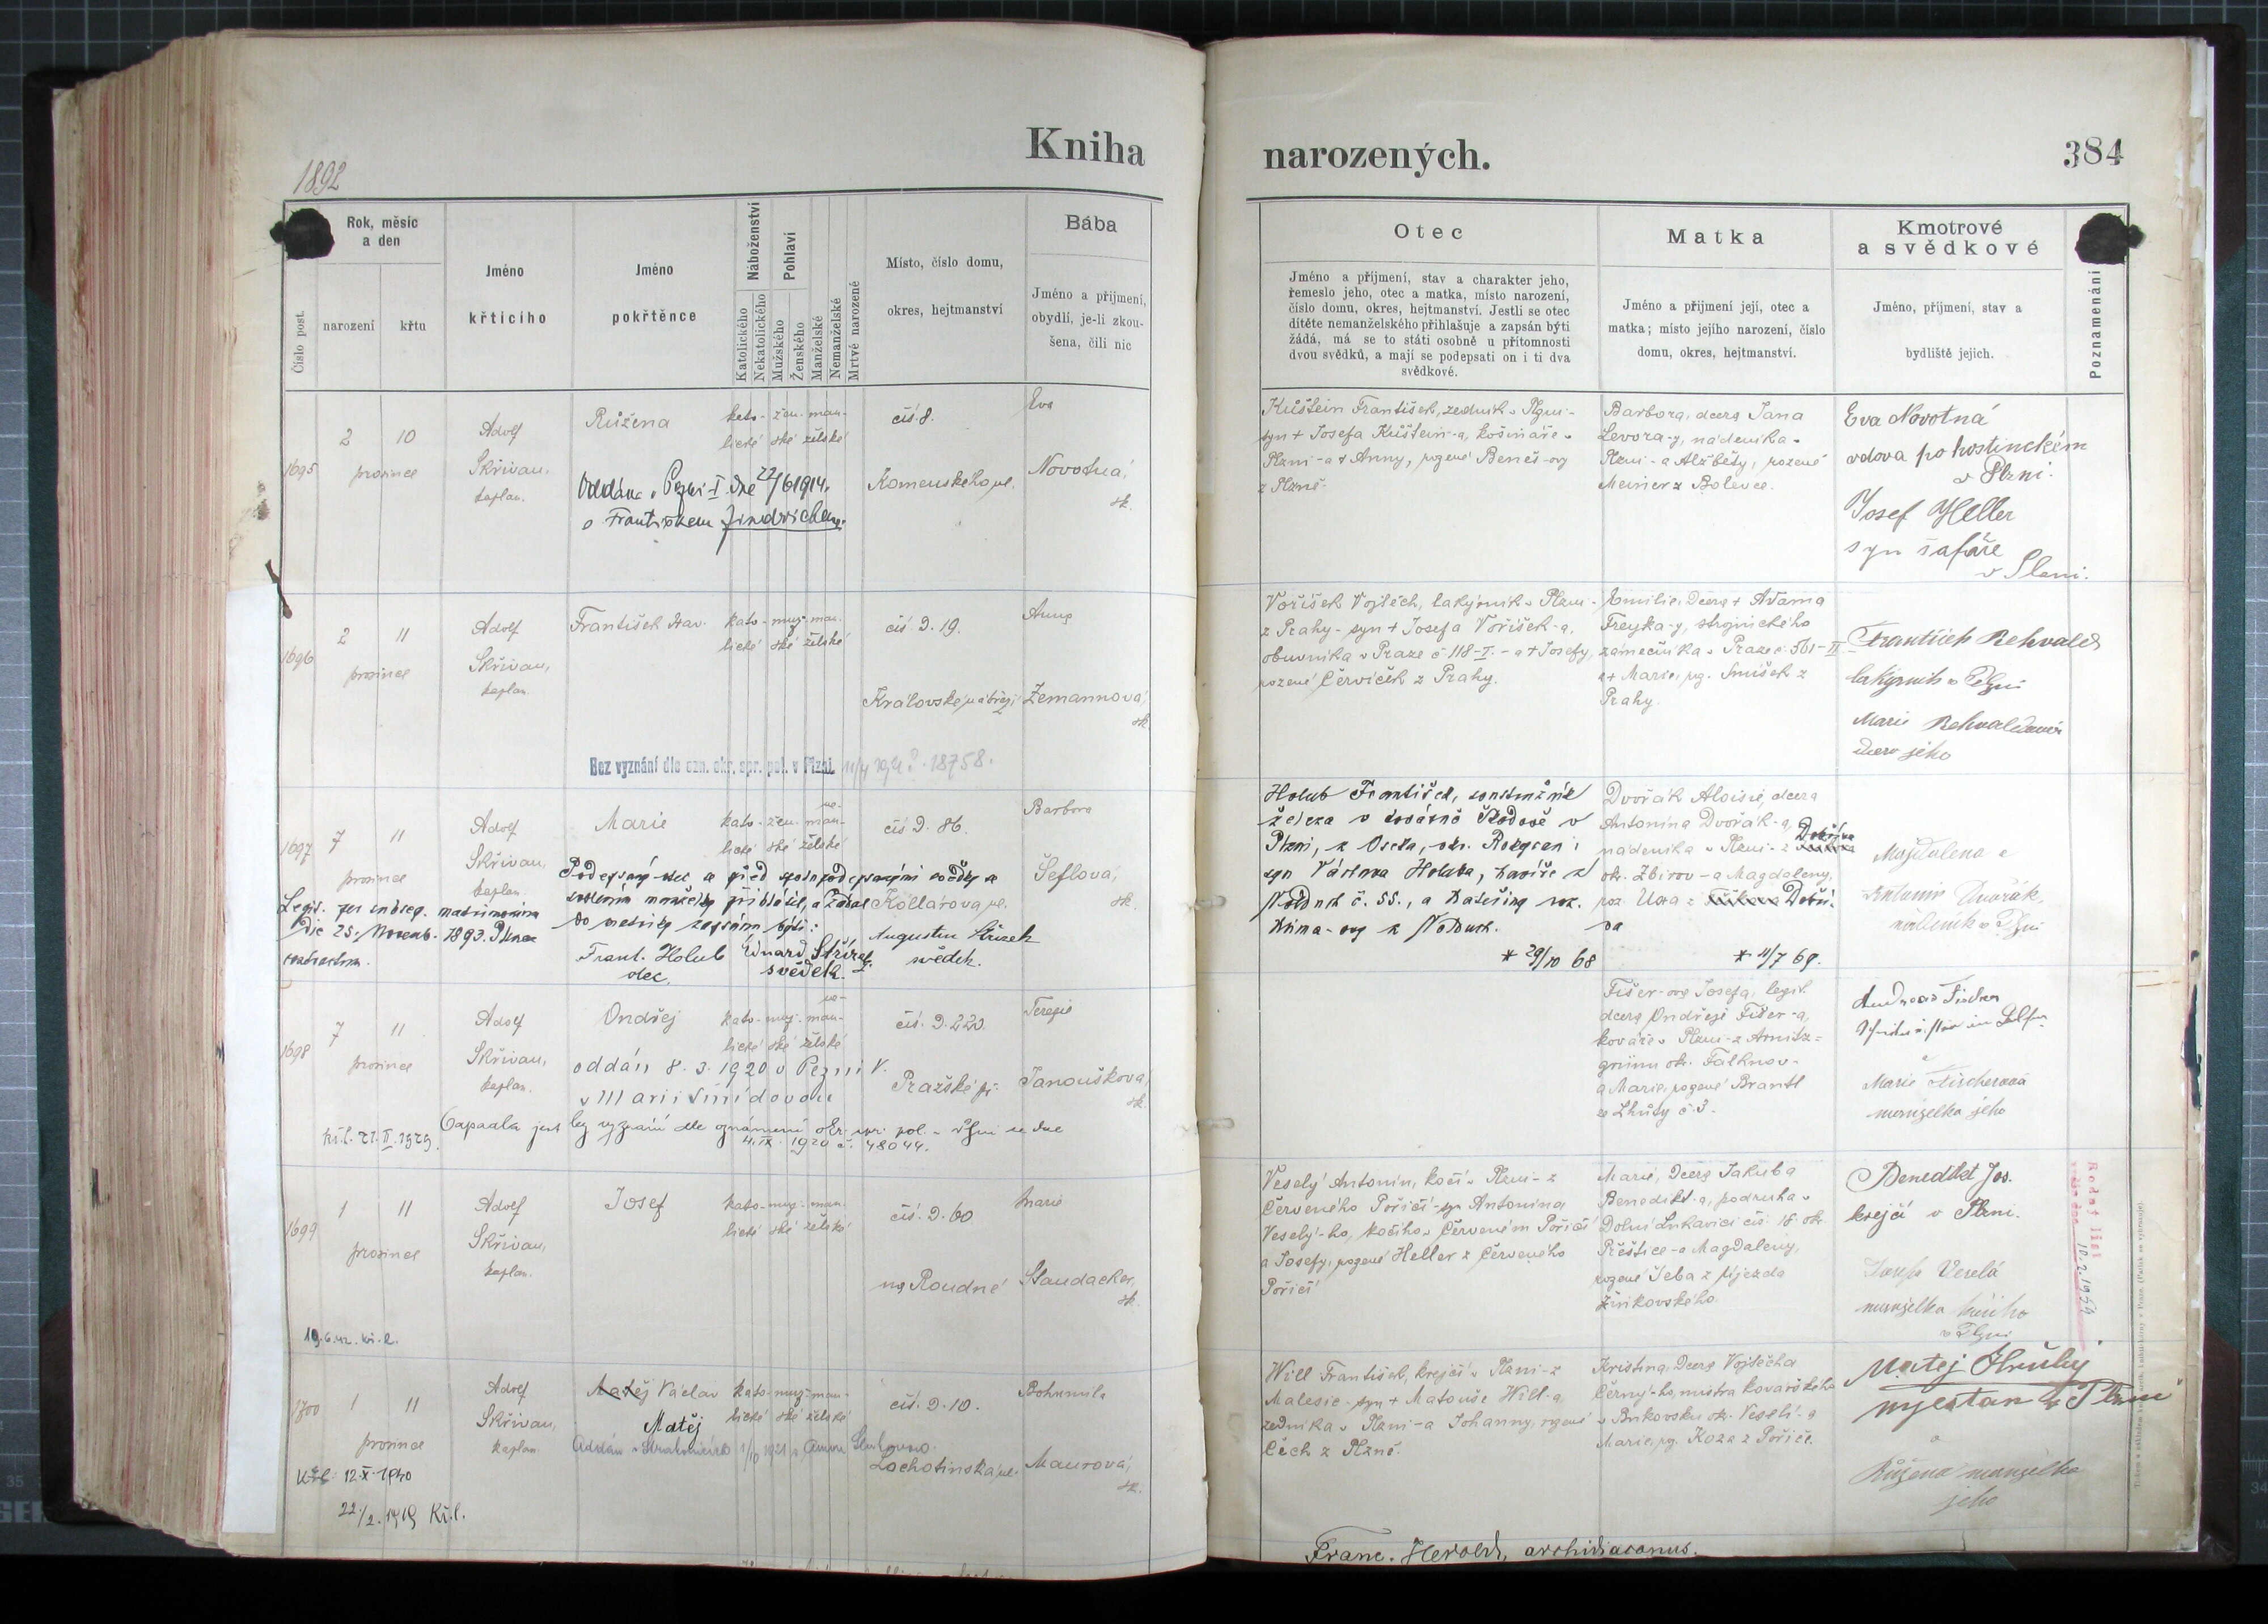 Kniha narozených.
384
1892
Číslo post.
Rok, měsíc
a den
narození
křtu
Jméno
křtícího
Jméno
pokřtěnce
Náboženství
Katolického
Nekatolického
Pohlaví
Mužského
Ženského
Manželské
Nemanželské
Mrtvé narozené
Místo, číslo domu,
okres, hejtmanství
Bába
Jméno a příjmení,
obydlí, je-li zkou-
šena, čili nic
Otec
Jméno a příjmení, stav a charakter jeho,
řemeslo jeho, otec a matka, místo narození,
číslo domu, okres, hejtmanství. Jestli se otec
dítěte nemanželského přihlašuje a zapsán býti
žádá, má se to státi osobně u přítomnosti
dvou svědků, a mají se podepsati on i ti dva
svědkové.
Matka
Jméno a příjmení její, otec a
matka; místo jejího narození, číslo
domu, okres, hejtmanství.
Kmotrové
a svědkové
Jméno, příjmení, stav a
bydliště jejich.
Poznamenání
1695
2 10
prosince
Adolf
Skřivan,
kaplan.
Růžena
kato- žen- man-
lické ské želské
Oddána v Plzni I. dne 22/6 1914.
s Františkem Jindřichem.
čís 8.
Komenského ul.
Eva
Novotná,
zk.
Kuštein František, zedník v Plzni -
syn + Josefa Kuštein-a, košináře v
Plzni - a + Anny, rozené Beneš-ovy
z Plzně.
Barbora, dcera Jana
Levora-y, nádeníka v
Plzni - a Alžběty, rozené
Meiner z Bolevce.
Eva Novotná
vdova po hostinckém
v Plzni.
Josef Heller
syn šafáře
v Plzni.
1696
2 11
prosince
Adolf
Skřivan,
kaplan.
František Xav.
kato- muž- man-
lické ské želské
čís D. 19.
Královské nábřeží
Anna
Zemannová,
zk.
Bez vyznání dle ozn. okr. spr. pol. v Plzni 18758.
Voříšek Vojtěch, lakýrník v Plzni -
z Prahy - syn + Josefa Voříšek-a,
obuvníka v Praze č 118-I. - a + Josefy,
rozené Červíček z Prahy.
Emilie, dcera + Adama
Freyka-y, strojnického
zámečníka v Praze č. 561-II -
a + Marie, roz. Smíšek z
Prahy.
František Rehvald
lakýrník v Plzni
Marie Rehvaldová
dcera jeho
1697
7 11
prosince
Adolf
Skřivan,
kaplan.
Marie
ne-
kato- žen- man-
lické ské želské
čís D. 86.
Kollárova ul.
Barbora
Šeflová,
zk.
Legit. per subseq. matrimonium
die 25. Novemb. 1893. Plznae
contractum.
Podepsaný otec a před spolupodepsanými svědky
přihlásil, a žádal
do matriky zapsán býti:
Frant. Holub
otec.
Eduard Stříz
svědek.
Augustin Střízek
svědek.
Holub František, soustružník
železa v továrně Škodově v
Plzni, z Oseka, okr. Rokycan;
syn Václava Holuba, havíře z
č. 55., a Kateřiny roz.
Klíma-ovy
* 29/10 68
Dvořák Aloisie, dcera
Antonína Dvořák-a,
nádeníka v Plzni - z Dobříva
okr. Zbirov - a Magdaleny,
roz. Uxa z Dobří-
va
* 11/7 69.
Majdalena a
Antonín Dvořák,
nádeník v Plzni
1698
7 11
prosince
Adolf
Skřivan,
kaplan.
Ondřej
ne-
kato- muž- man-
lické ské želské
oddán 8. 3. 1920 v Plzni V.
s Marií Šmídovou
čís. D. 220.
Pražské př.
Terezie
Janoušková,
zk.
Kř.l. 21. II. 1929.
bez vyznání dle oznámení okr. spr. pol. v Plzni ze dne
4. IX. 1920 č. 48044.
Fišer-ová Josefa, legit.
dcera Ondřeje Fišer-a,
kováře v Plzni - z Arnitz-
grünu okr. Falknov -
a Marie, rozené Brantl
ze Lhůty č. 3.
Andreas Fischer
a
Marie Fischerová
manželka jeho
1699
1 11
prosince
Adolf
Skřivan,
kaplan.
Josef
kato- muž- man-
lické ské želské
čís. D. 60
na Roudné
Marie
Staudacher,
zk.
19.6.42. kř.l.
Veselý Antonín, kočí v Plzni - z
Červeného Poříčí - syn Antonína
Veselý-ho, kočího v Červeném Poříčí
a Josefy, rozené Heller z Červeného
Poříčí
Marie, dcera Jakuba
Benedikt-a, podruha v
Dolní Lukavici čís. 18 okr.
Přeštice - a Magdaleny,
rozené Jeba z Újezda
Žinkovského.
Benedikt Jos.
krejčí v Plzni.
Josefa Veselá
manželka kočího
v Plzni
Rodný list
10.2.1959
1700
1 11
prosince
Adolf
Skřivan,
kaplan.
Matěj Václav
Matěj
kato- muž- man-
lické ské želské
čís. D. 10.
Lochotínská ul.
Bohumila
Maurová,
zk.
Oddán v Strakonicích 1/10 1921 s Annou
Kř.l. 12.X.1940
22/2. 1919 Kř.l.
Will František, krejčí v Plzni - z
Malesic - syn + Matouše Will-a,
zedníka v Plzni - a Johanny, rozené
Čech z Plzně.
Kristina, dcera Vojtěcha
Černý-ho, mistra kovářského
v Bukovsku okr. Veselí - a
Marie, roz. Koza z Poříčí.
Matěj Hrubý
mještan v Plzni
a
Růžena manželka
jeho
Franc. Herold, archidiaconus.